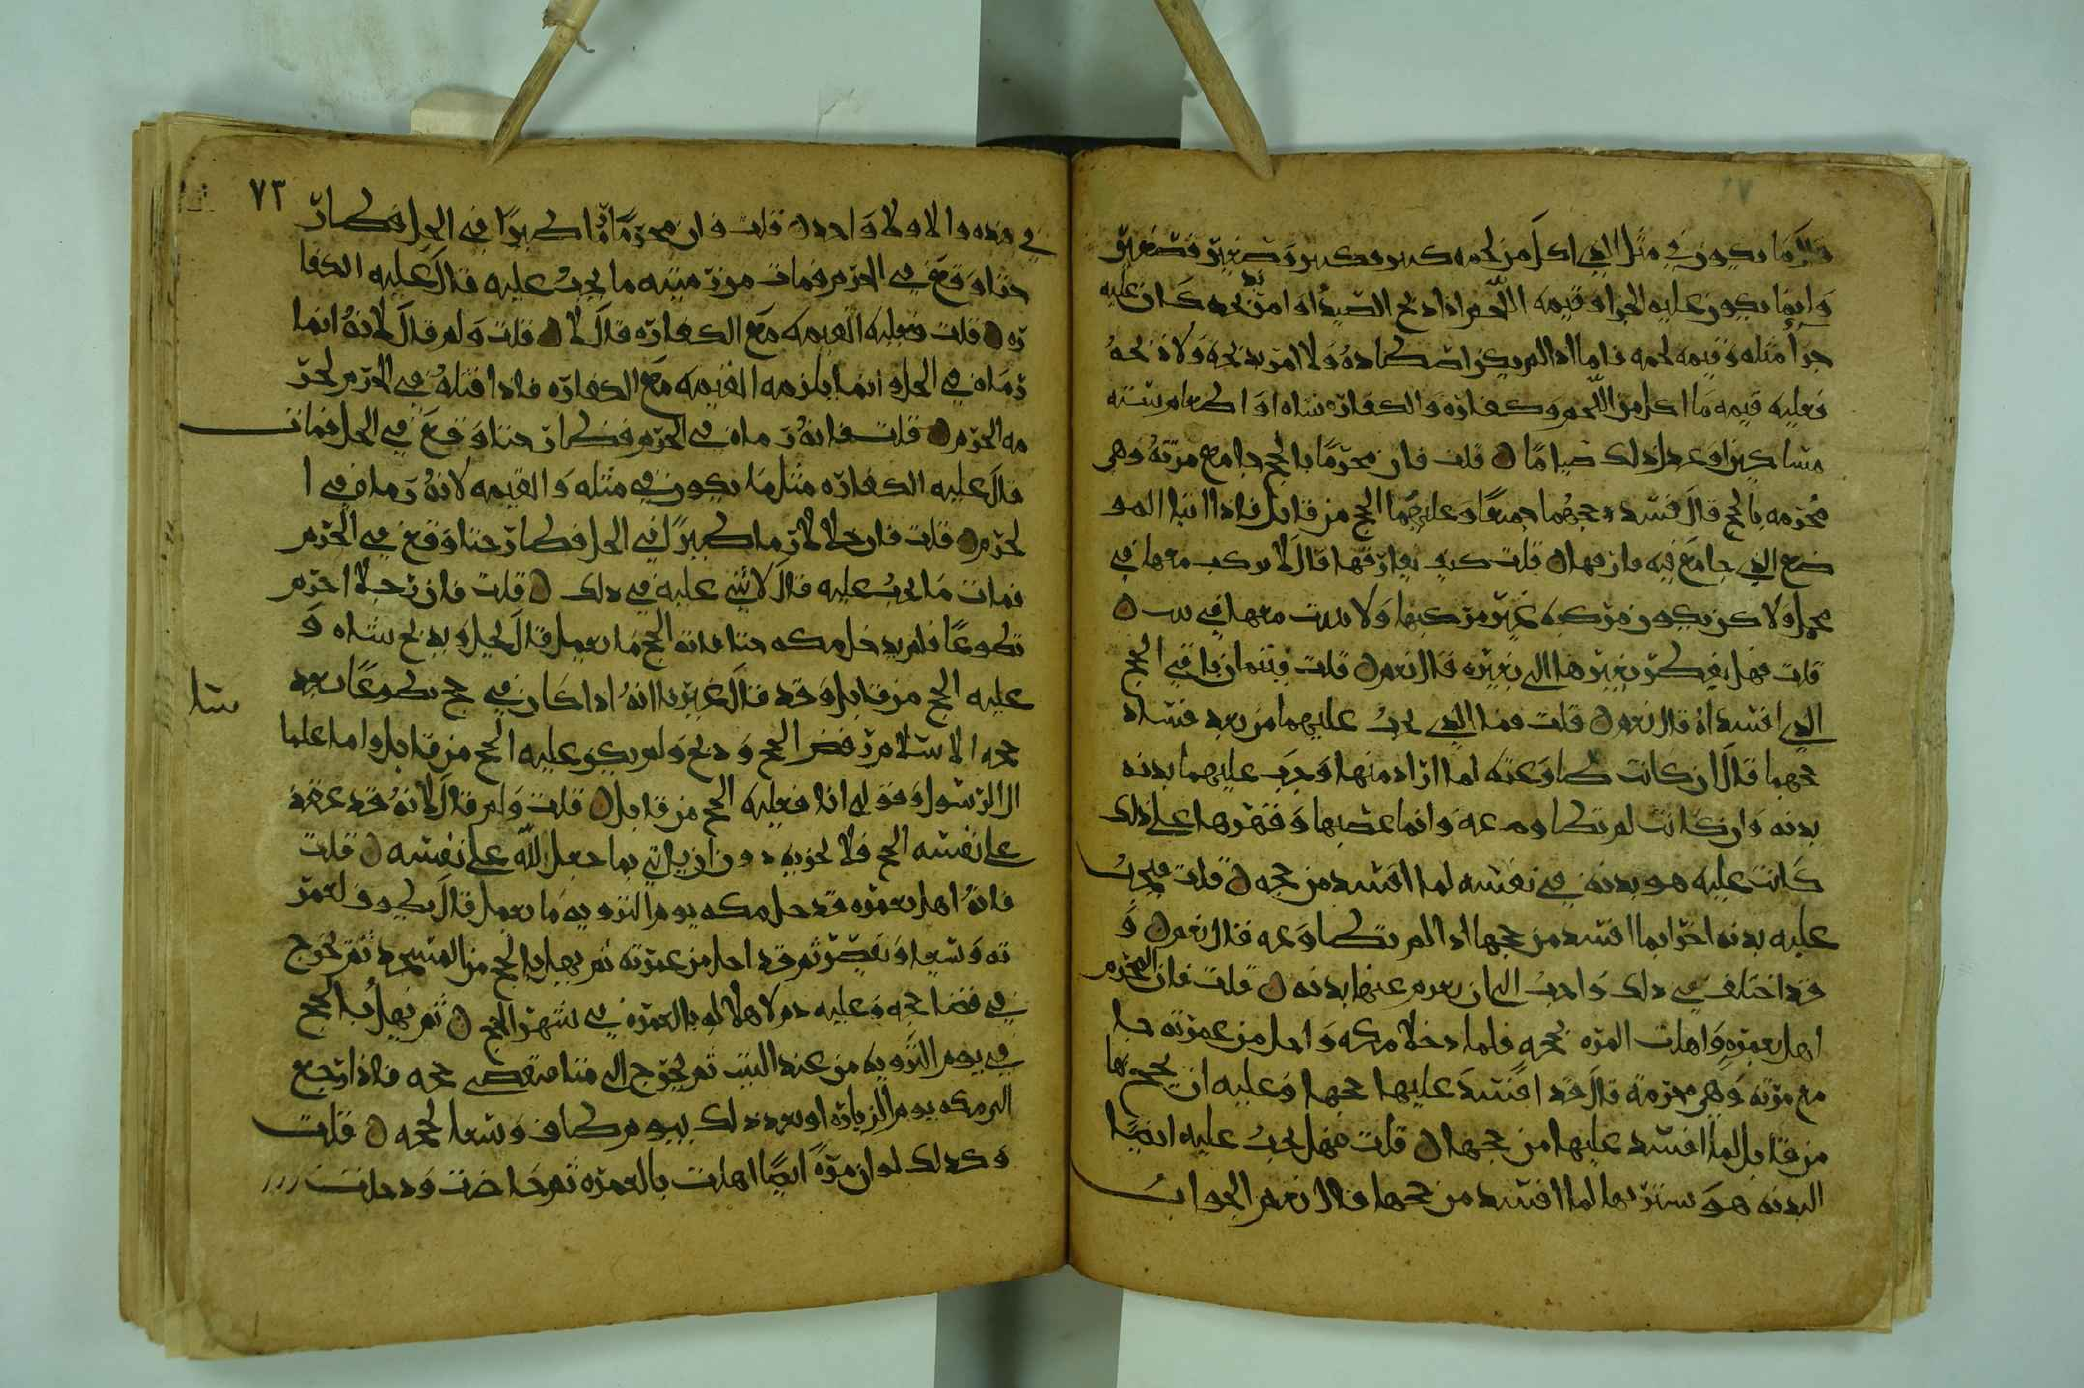 قال ما يكون في مثل الذي اكل من لحمه كبير فكبير وصغير فصغير
وانما يكون عليه الجزا وقيمه اللحم اذا ذبح الصيد او امر بذبحه كان عليه
جزا مثله وقيمه لحمه فاما اذا لم يكن اصطاده ولا امر بذبحه ولا ذبحه
فعليه قيمه ما اكل من اللحم وكفارة والكفارة شاه او اطعام سته
مساكين او عدل ذلك صياما ۝ قلت فان محرما بالحج جامع مرته وهي
محرمه بالحج قال فسد حجهما جميعا وعليهما الحج من قابل فاذا اتيا المو
ضع الذي جامع فيه فارقها ۝ قلت كيف يفارقها قال لا يركب معها في
محمل ولا كن يكون مركبه غير مركبها ولا يبيت معها في بيت ۝
قلت فهل يقطر بعيرها الى بعيره قال نعم ۝ قلت فيتمان باقي الحج
الذي افسداه قال نعم ۝ قلت فما الذي يجب عليهما من بعد فساد
حجهما قال ان كانت طاوعته لما اراد منها وجب عليهما بدنه
بدنه وان كانت لم تطاوعه وانما غصبها وقهرها على ذلك
كانت عليه هو بدنه في نفسه لما افسد من حجه ۝ قلت فيجب
عليه بدنه اخرا بما افسد من حجها اذا لم تطاوعه قال نعم ۝ و
قد اختلف في ذلك واحب الي ان يغرم عنها بدنه ۝ قلت فان المحرم
اهل بعمرة واهلت المره بحجه فلما دخلا مكه واحل من عمرته جا
مع مرته وهي محرمه قال قد افسد عليها حجها وعليه ان يحج بها
من قابل لما افسد عليها من حجها ۝ قلت فهل يجب عليه ايضا
البدنه هو يشتريها لما افسد من حجها قال نعم الجواب
٧٣
في هذه والاولا واحد ۝ قلت فان محرما رما طيرا في الحل فطار
حتا وقع في الحرم فمات من رميته ما يجب عليه قال عليه الكفا
ره ۝ قلت فعليه القيمه مع الكفاره قال لا ۝ قلت ولم قال لانه انما
رماه في الحل وانما يلزمه القيمه مع الكفاره فاذا قتله في الحرم لحر
مه الحرم ۝ قلت فانه رماه في الحرم فطار حتا وقع في الحل فمات
قال عليه الكفاره مثل ما يكون في مثله والقيمه لانه رماه في ا
لحرم ۝ قلت فان حلالا رما طيرا في الحل فطار حتا وقع في الحرم
فمات ما يجب عليه قال لا شي عليه في ذلك ۝ قلت فان رجلا احرم
تطوعا فلم يدخل مكه حتا فاته الحج ما يعمل قال يحل ويذبح شاه و
عليه الحج من قابل وقد قال غيرنا انه اذا كان في حج تطوعا بعد
حجه الاسلام رفض الحج وذبح ولم يكن عليه الحج من قابل واما علما
ال الرسول وقولي انا فعليه الحج من قابل ۝ قلت ولم قال لانه قد عقد
على نفسه الحج فلا يجزيه دون ان ياتي بما جعل الله على نفسه ۝ قلت
فانه اهل بعمره فدخل مكه يوم الترويه ما يعمل قال يطوف لعمر
ته ويسعا ويقصر ثم قد احل من عمرته ثم يهل بالحج من المسجد ثم يخرج
في قضا حجه وعليه دم لاهلاله بالعمره في شهر الحج ۝ ثم يهل بالحج
في يوم الترويه من عند البيت ثم يخرج الى منا فيقضي حجه فاذا رجع
الى مكه يوم الزياره او بعد ذلك بيوم طاف وسعا لحجه ۝ قلت
وكذلك لو ان مرة ايضا اهلت بالعمره ثم حاضت ودخلت